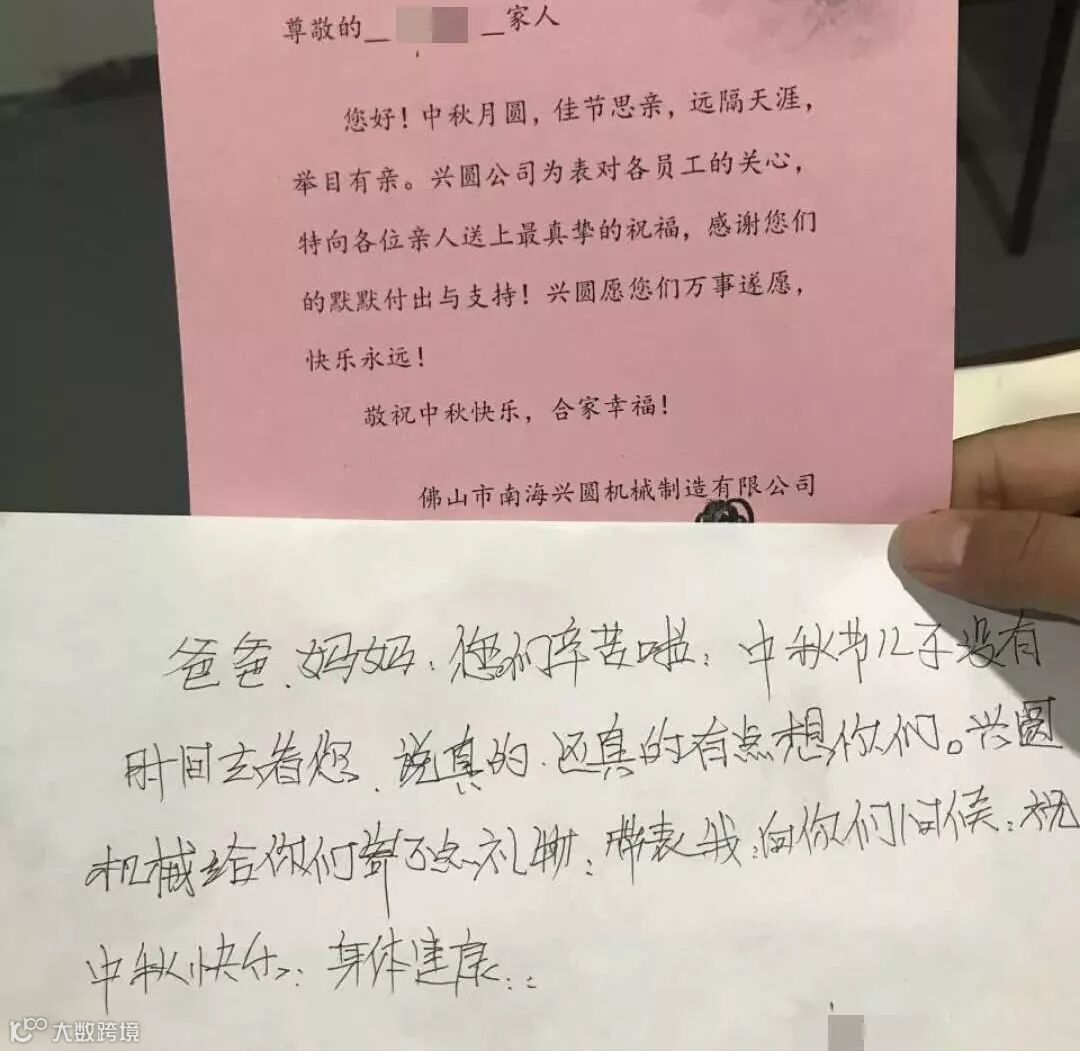 尊敬的__ __家人
您好！中秋月圆，佳节思亲，远隔天涯，
举目有亲。兴圆公司为表对各员工的关心，
特向各位亲人送上最真挚的祝福，感谢您们
的默默付出与支持！兴圆愿您们万事遂愿，
快乐永远！
敬祝中秋快乐，合家幸福！
佛山市南海兴圆机械制造有限公司
爸爸、妈妈：您们辛苦啦：中秋节儿子没有
时间去看您、说真的、还真的有点想你们。兴圆
机械给你们寄了点礼物：带表我：向你们问候：祝
中秋快乐：身体健康：
大数跨境